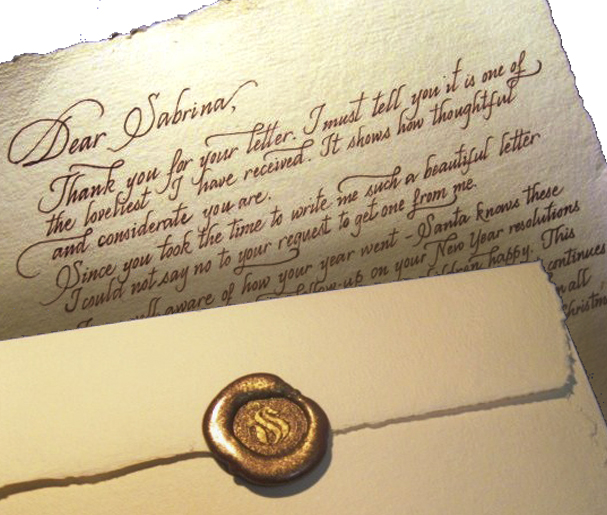 Dear Sabrina,
Thank you for your letter. I must tell you it is one of
the loveliest I have received. It shows how thoughtful
and considerate you are.
Since you took the time to write me such a beautiful letter
I could not say no to your request to get one from me.
aware of how your year went - Santa knows these
follow-up on your New Year resolutions
happy. This
continues
all